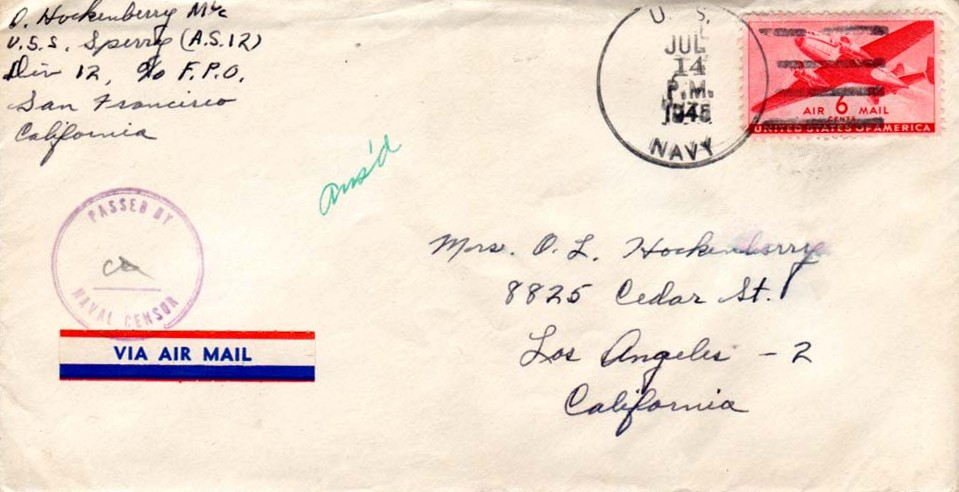 O. Hockenberry M1c
U.S.S. Sperry (A.S.12)
Div 12, ℅ F.P.O.
San Francisco
California
U. S.
JUL
14
P.M.
1945
NAVY
AIR 6 MAIL
CENTS
UNITED STATES OF AMERICA
ans'd
PASSED BY
NAVAL CENSOR
VIA AIR MAIL
Mrs. O. L. Hockenberry
8825 Cedar St.
Los Angeles - 2
California